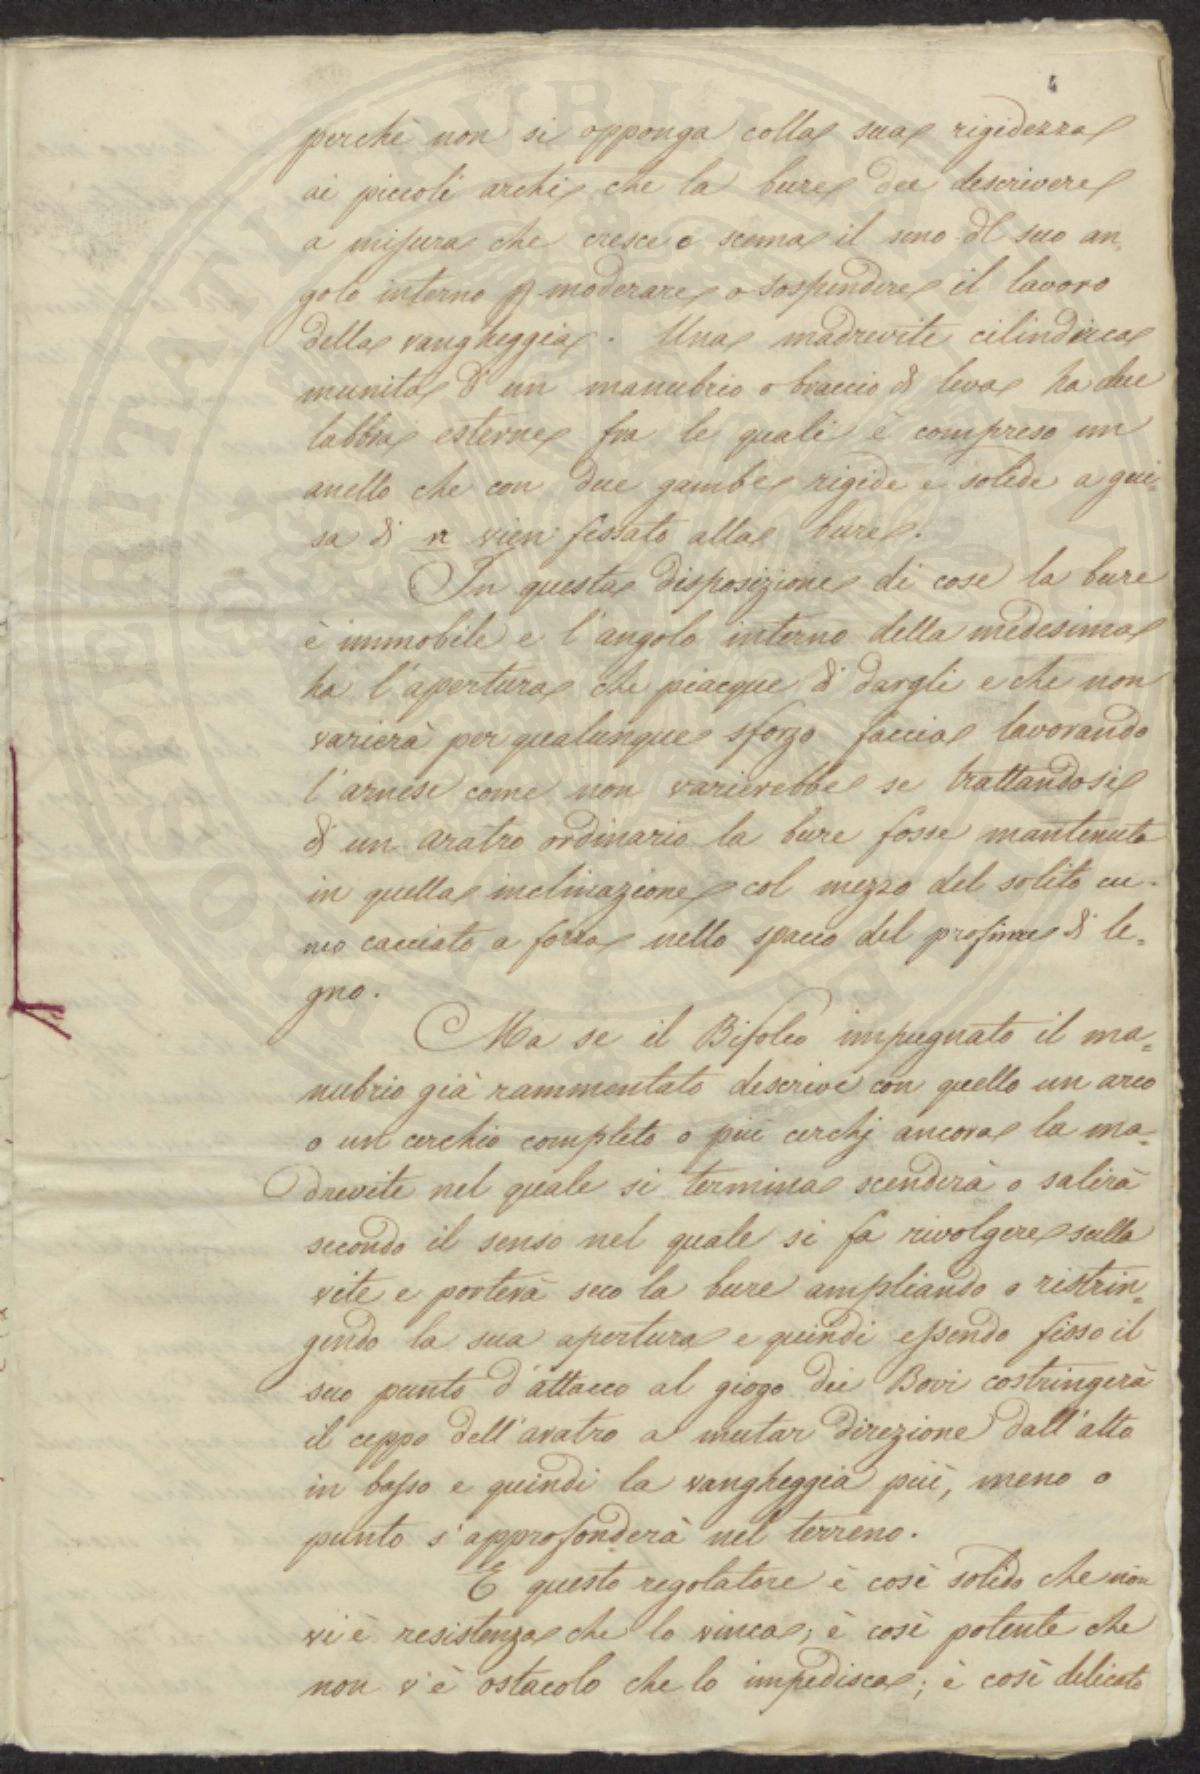 4
perchè non si opponga colla sua rigidezza
ai piccoli archi che la bure dee descrivere
a misura che cresce o scema il seno del suo an=
golo interno p moderare o sospendere il lavoro
della vangheggia. Una madrevite cilindrica
munita d'un manubrio o braccio di leva ha due
labbra esterne fra le quali è compreso un
anello che con due gambe rigide e solide a gui=
sa di n vien fissato alla bure.
In questa disposizione di cose la bure
è immobile e l'angolo interno della medesima
ha l'apertura che piacque di dargli e che non
varierà per qualunque sforzo faccia lavorando
l'arnese come non varierebbe se trattandosi
di un aratro ordinario la bure fosse mantenuta
in quella inclinazione col mezzo del solito cu=
neo cacciato a forza nello spacco del profime di le=
gno.
Ma se il Bifolco impugnato il ma=
nubrio già rammentato descrive con quello un arco
o un cerchio completo o più cerchj ancora la ma=
drevite nel quale si termina scenderà o salirà
secondo il senso nel quale si fa rivolgere sulla
vite e porterà seco la bure ampliando o ristrin=
gendo la sua apertura e quindi essendo fisso il
suo punto d'attacco al giogo dei Bovi costringerà
il ceppo dell'aratro a mutar direzione dall'alto
in basso e quindi la vangheggia più, meno o
punto s'approfonderà nel terreno.
E questo regolatore è così solido che non
vi è resistenza che lo vinca; è così potente che
non v'è ostacolo che lo impedisca; è così delicato
PROSPERITATI PVBLICAE